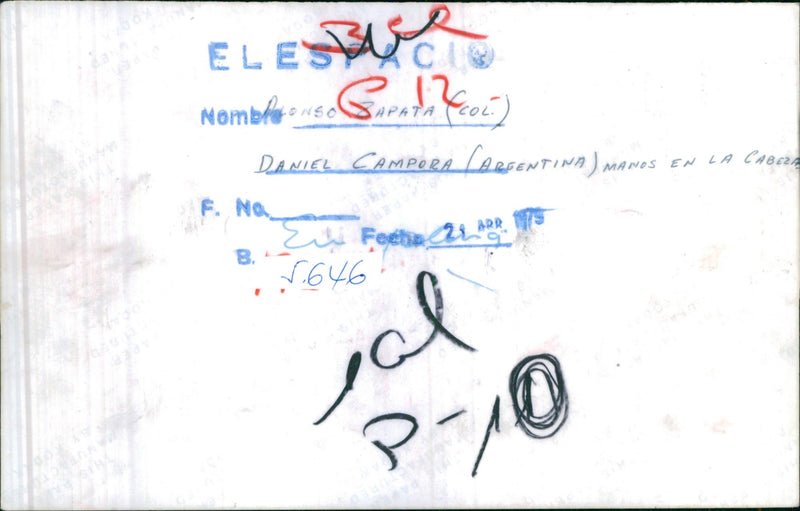 EL ESPACIO
6 12
Nombre ALONSO ZAPATA (COL.)
DANIEL CAMPORA (ARGENTINA) MANOS EN LA CABEZA
F. No.
Fecha 21 ABR. 1975
B.
5.646
1 Col
P-10